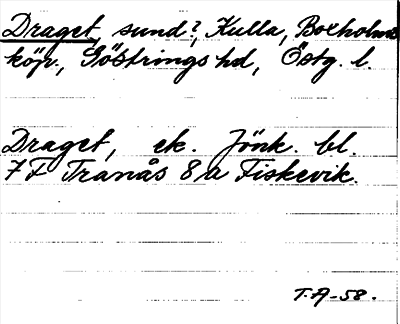 Draget, sund?, Kulla, Boxholms
köp., Göstrings hd, Östg. l.
Draget, ek. Jönk. bl.
7F Tranås 8a Fiskevik.
T.A-58.